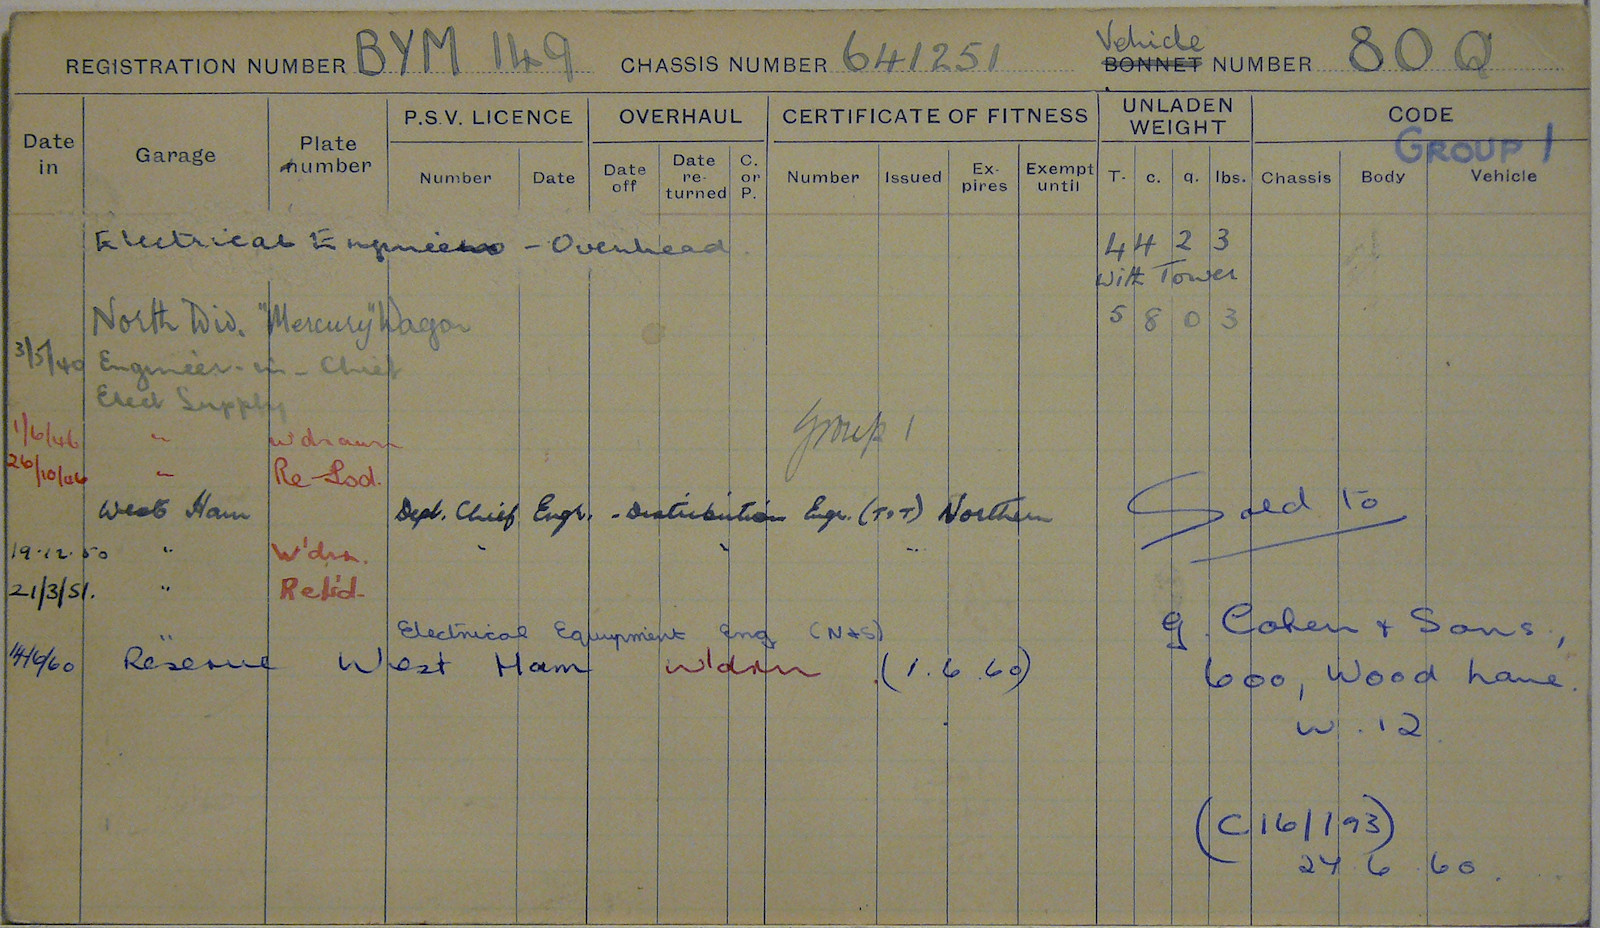 REGISTRATION NUMBER BYM 149 CHASSIS NUMBER 641251 Vehicle BONNET NUMBER 80 Q
Date in Garage Plate number P.S.V. LICENCE OVERHAUL CERTIFICATE OF FITNESS UNLADEN WEIGHT CODE
GROUP 1
Number Date Date off Date re-turned C. or P. Number Issued Ex-pires Exempt until T. c. q. lbs. Chassis Body Vehicle
Electrical Engineers - Overhead 4 4 2 3
With Tower
North Div. "Mercury" Wagon 5 8 0 3
3/5/40 Engineer-in-Chief
Elect Supply
1/6/46 " Wdrawn Group 1
26/10/46 " Re-Lsd.
West Ham Dept. Chief Engr. - Distribution Engr. (T+T) Northern Sold to
19.12.50 " W'drn. " " "
21/3/51. " Relsd.
Electrical Equipment Eng (N&S) G. Cohen & Sons,
14/6/60 Reserve West Ham W'drn (1.6.60) 600, Wood Lane.
W.12
(C16/193)
24.6.60.